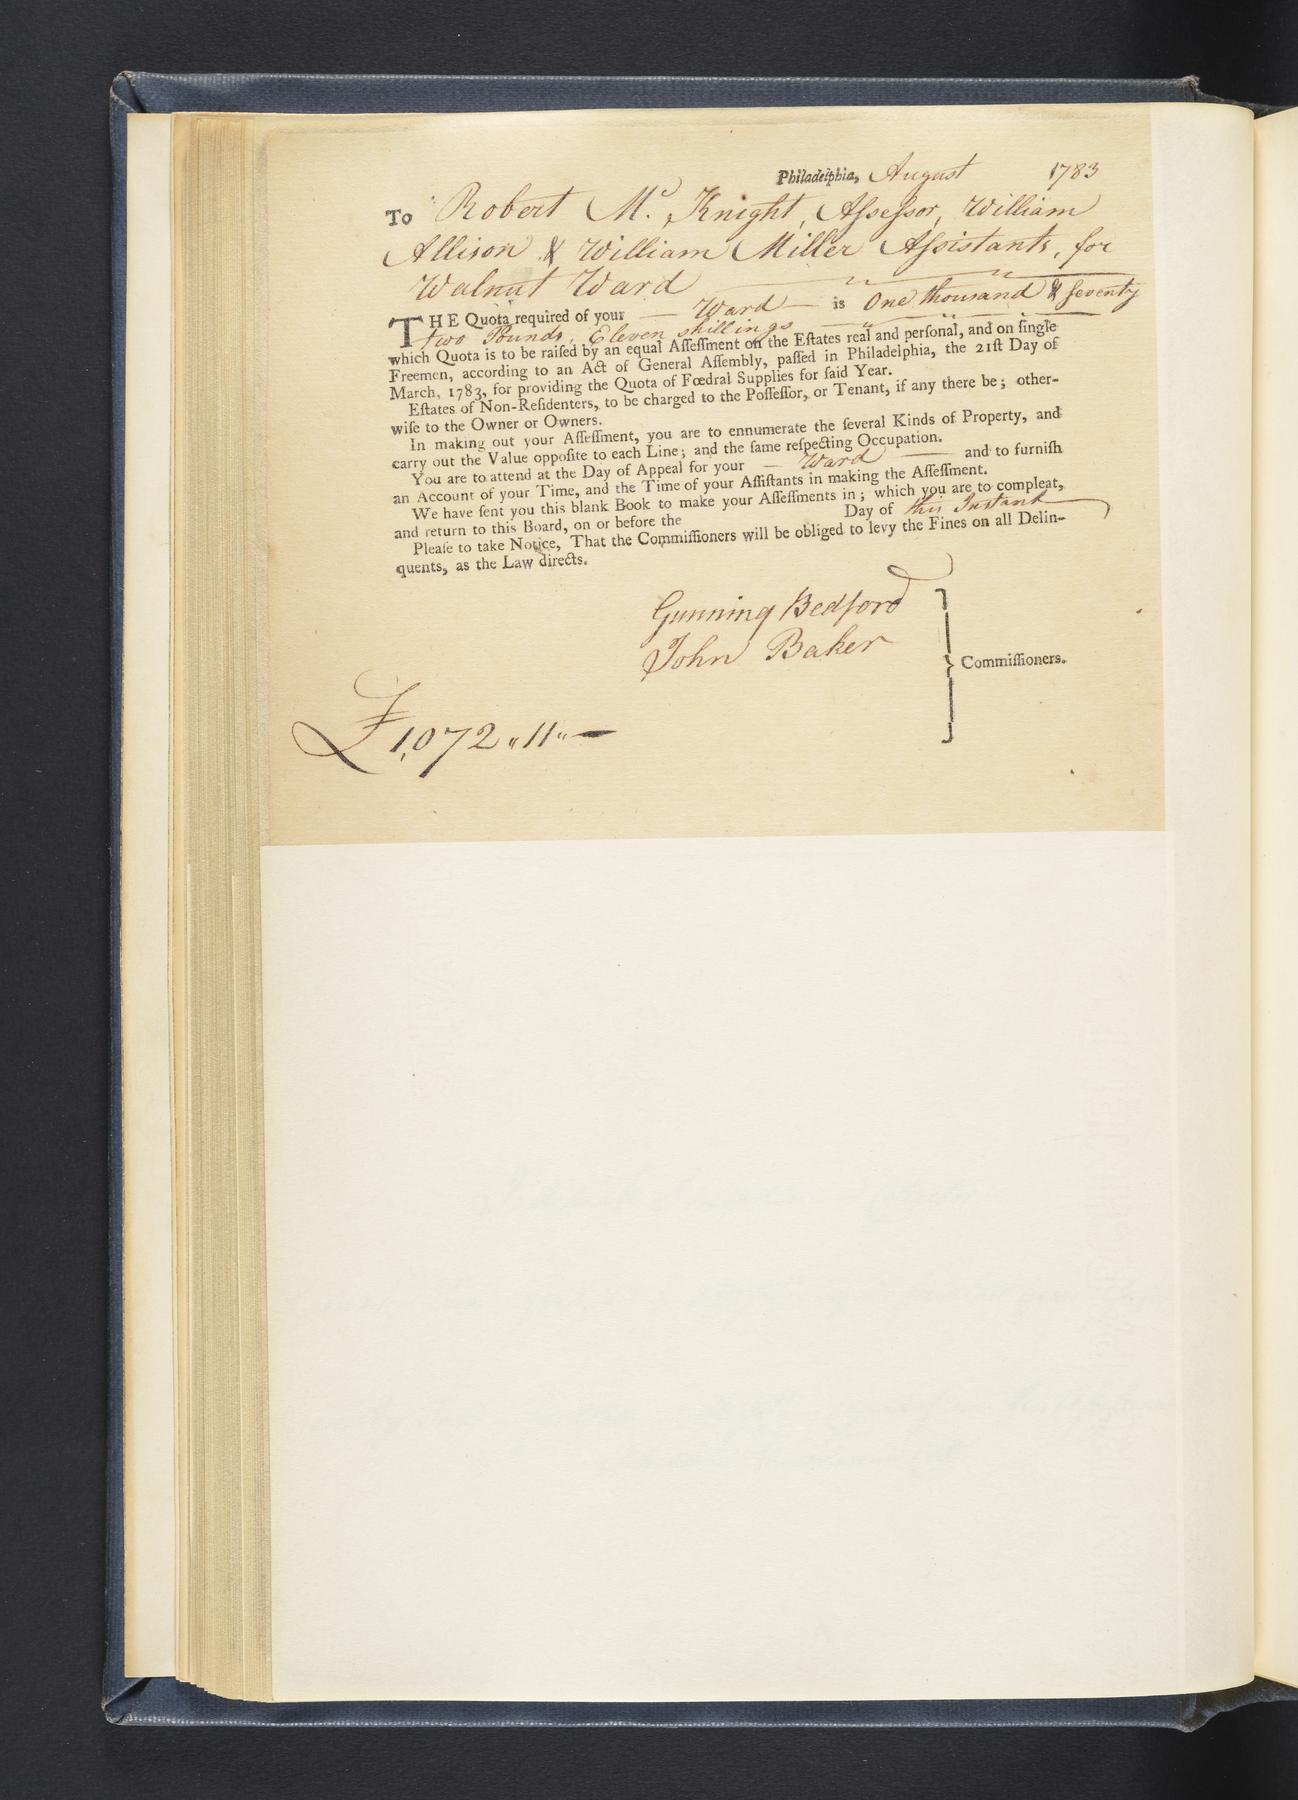 Philadelphia, August 1783
To Robert Mc. Knight, Aſseſsor, William
Allison & William Miller Aſsistants, for
Walnut Ward
THE Quota required of your — Ward — is One thousand & Seventy
two Pounds, Eleven shillings
which Quota is to be raiſed by an equal Aſſeſſment on the Eſtates real and perſonal, and on ſingle
Freemen, according to an Act of General Aſſembly, paſſed in Philadelphia, the 21ſt Day of
March, 1783, for providing the Quota of Fœdral Supplies for ſaid Year.
Eſtates of Non-Reſidenters, to be charged to the Poſſeſſor, or Tenant, if any there be; other-
wiſe to the Owner or Owners.
In making out your Aſſeſſment, you are to ennumerate the ſeveral Kinds of Property, and
carry out the Value oppoſite to each Line; and the ſame reſpecting Occupation.
You are to attend at the Day of Appeal for your — Ward — and to furniſh
an Account of your Time, and the Time of your Aſſiſtants in making the Aſſeſſment.
We have ſent you this blank Book to make your Aſſeſſments in; which you are to compleat,
and return to this Board, on or before the Day of this Instant
Pleaſe to take Notice, That the Commiſſioners will be obliged to levy the Fines on all Delin-
quents, as the Law directs.
Gunning Bedford
John Baker
Commiſſioners.
£1,072 „ 11 „ —